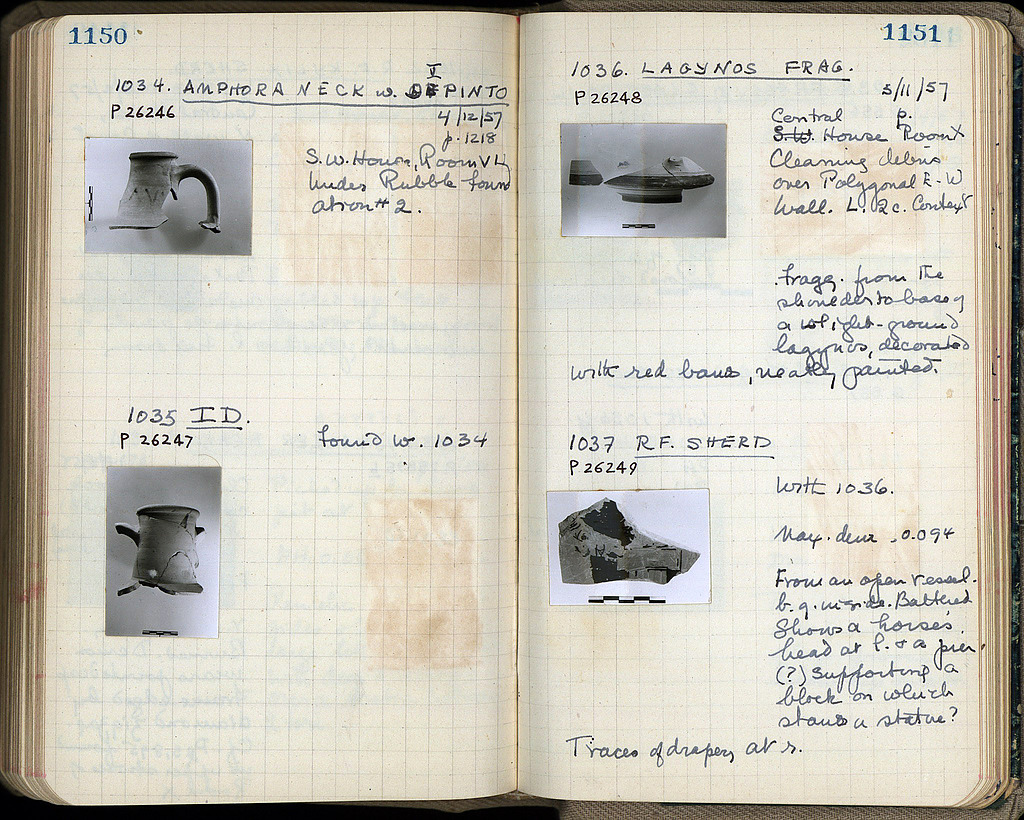 1150
1034. AMPHORA NECK w. DIPINTO
P 26246
4/12/57
p. 1218
S.W. House, Room VI,
Under Rubble Found
ation # 2.
1035 ID.
P 26247
Found w. 1034
1151
1036. LAGYNOS FRAG.
P 26248
5/11/57
Central p.
S.W. House Room X
Cleaning debris
over Polygonal E-W
Wall. L. 2c. Context
Fragg. from the
shoulder to base of
a light-ground
lagynos, decorated
with red bands, neatly painted.
1037 R.F. SHERD
P 26249
With 1036.
Max. dim. 0.094
From an open vessel.
b.g. inside. Battered
Shows a horse's
head at l. & a pier
(?) supporting a
block on which
stands a statue?
Traces of drapery at r.